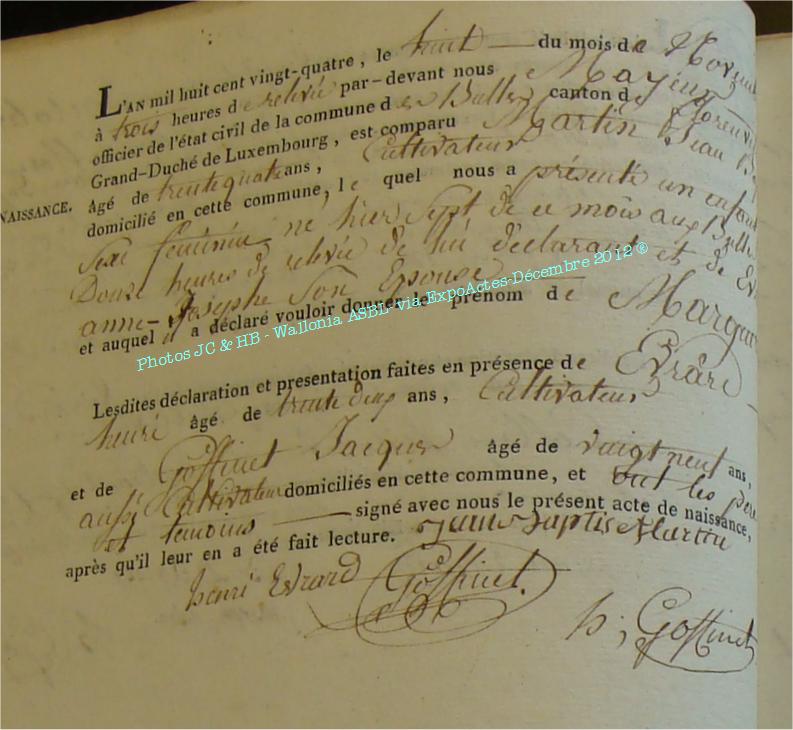 L'AN mil huit cent vingt-quatre, le huit du mois de Novem
à trois heures de relevée par-devant nous Mayeur
officier de l'état civil de la commune des Bulles canton de Florenvi
Grand-Duché de Luxembourg, est comparu Martin Jean B
NAISSANCE.
âgé de trente quatre ans, Cultivateur
domicilié en cette commune, le quel nous a présenté un enfant
Sexe féminin ne hier Sept de ce mois aux Bulles
Douze heures de relevée de lui déclarant et de Ev
anne-Josephe Son Epouse
et auquel il a déclaré vouloir donner le prénom de Margue
Photos JC & HB - Wallonia ASBL via ExpoActes-Décembre 2012 ®
Lesdites déclaration et presentation faites en présence de Evrard
henri âgé de trente deux ans, Cultivateur
et de Goffinet Jacques âgé de vingt neuf ans,
aussi Cultivateur domiciliés en cette commune, et ont les pere
et temoins signé avec nous le présent acte de naissance,
après qu'il leur en a été fait lecture. Jean Baptiste Martin
henri Evrard Goffinet.
h; Goffinet